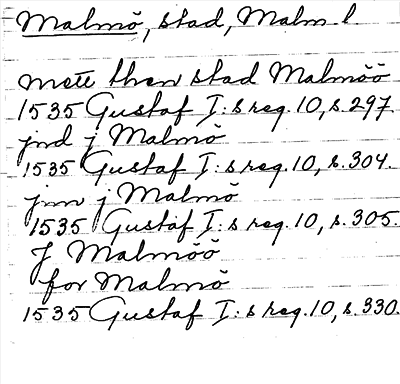 Malmö, stad, Malm l.
mett then stad Malmöö
1535 Gustaf I:s reg. 10, s. 297.
jnd j Malmö
1535 Gustaf I:s reg. 10, s. 304.
jnn j Malmö
1535 Gustaf I:s reg. 10, s. 305.
J Malmöö
for Malmö
1535 Gustaf I:s reg. 10, s. 330.